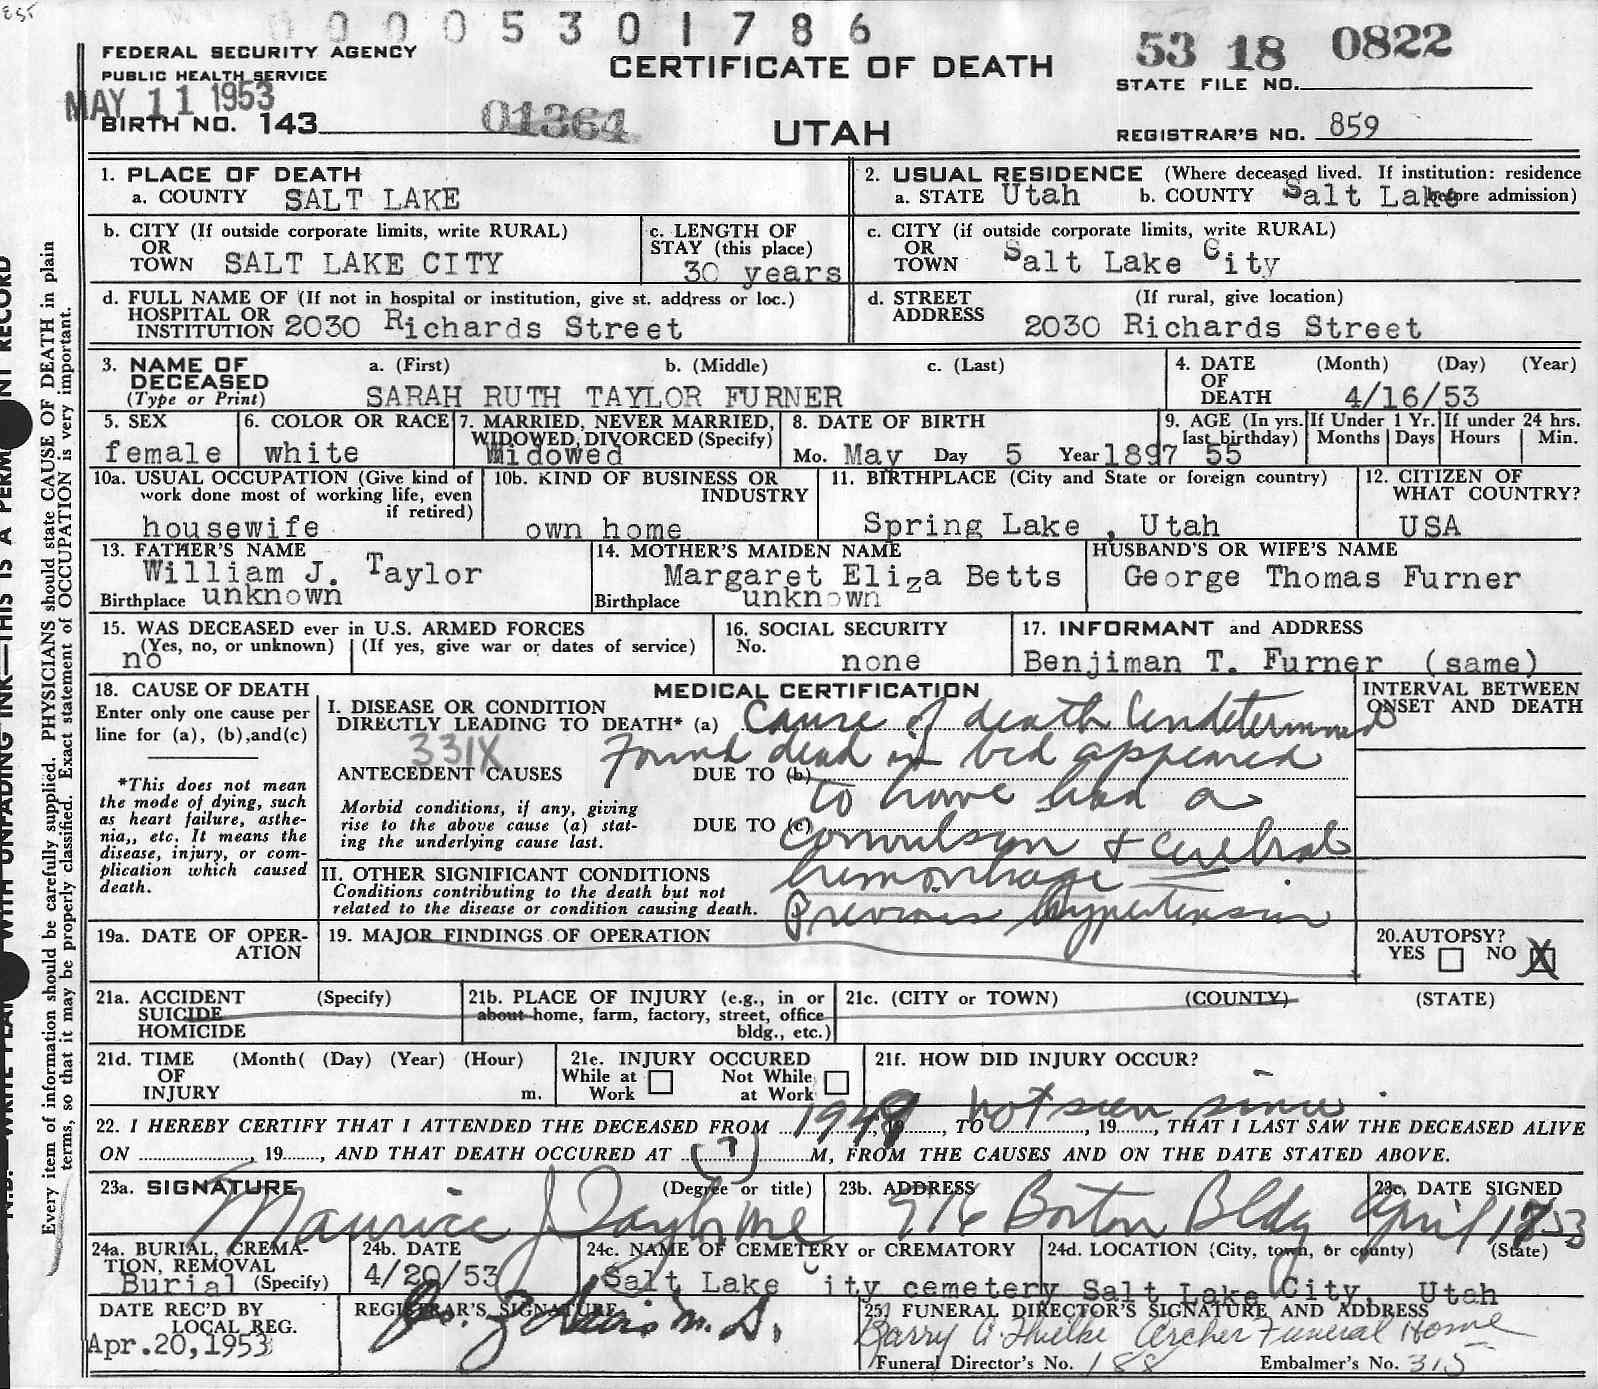 0 0 0 5 3 0 1 7 8 6
FEDERAL SECURITY AGENCY
PUBLIC HEALTH SERVICE
MAY 11 1953
BIRTH NO. 143
01364
CERTIFICATE OF DEATH
UTAH
53 18 0822
STATE FILE NO.
REGISTRAR'S NO. 859
1. PLACE OF DEATH
a. COUNTY SALT LAKE
2. USUAL RESIDENCE (Where deceased lived. If institution: residence before admission)
a. STATE Utah b. COUNTY Salt Lake
b. CITY (If outside corporate limits, write RURAL)
OR
TOWN SALT LAKE CITY
c. LENGTH OF
STAY (this place)
30 years
c. CITY (if outside corporate limits, write RURAL)
OR
TOWN Salt Lake City
d. FULL NAME OF (If not in hospital or institution, give st. address or loc.)
HOSPITAL OR
INSTITUTION 2030 Richards Street
d. STREET (If rural, give location)
ADDRESS 2030 Richards Street
3. NAME OF a. (First) b. (Middle) c. (Last)
DECEASED
(Type or Print) SARAH RUTH TAYLOR FURNER
4. DATE (Month) (Day) (Year)
OF
DEATH 4/16/53
5. SEX
female
6. COLOR OR RACE
white
7. MARRIED, NEVER MARRIED,
WIDOWED, DIVORCED (Specify)
Widowed
8. DATE OF BIRTH
Mo. May Day 5 Year 1897
9. AGE (In yrs.
last birthday)
55
If Under 1 Yr.
Months Days
If under 24 hrs.
Hours Min.
10a. USUAL OCCUPATION (Give kind of
work done most of working life, even
if retired)
housewife
10b. KIND OF BUSINESS OR
INDUSTRY
own home
11. BIRTHPLACE (City and State or foreign country)
Spring Lake , Utah
12. CITIZEN OF
WHAT COUNTRY?
USA
13. FATHER'S NAME
William J. Taylor
Birthplace unknown
14. MOTHER'S MAIDEN NAME
Margaret Eliza Betts
Birthplace unknown
HUSBAND'S OR WIFE'S NAME
George Thomas Furner
15. WAS DECEASED ever in U.S. ARMED FORCES
(Yes, no, or unknown) (If yes, give war or dates of service)
no
16. SOCIAL SECURITY
No.
none
17. INFORMANT and ADDRESS
Benjiman T. Furner (same)
18. CAUSE OF DEATH
Enter only one cause per
line for (a), (b), and (c)
*This does not mean
the mode of dying, such
as heart failure, asthe-
nia,, etc. It means the
disease, injury, or com-
plication which caused
death.
MEDICAL CERTIFICATION
I. DISEASE OR CONDITION
DIRECTLY LEADING TO DEATH* (a) Cause of death Undetermined
331X
Found dead in bed appeared
ANTECEDENT CAUSES DUE TO (b)
to have had a
Morbid conditions, if any, giving
rise to the above cause (a) stat-
ing the underlying cause last.
DUE TO (c)
Convulsion + cerebral
hemorrhage
II. OTHER SIGNIFICANT CONDITIONS
Conditions contributing to the death but not
related to the disease or condition causing death.
Previous hypertension
INTERVAL BETWEEN
ONSET AND DEATH
19a. DATE OF OPER-
ATION
19. MAJOR FINDINGS OF OPERATION
20. AUTOPSY?
YES NO X
21a. ACCIDENT (Specify)
SUICIDE
HOMICIDE
21b. PLACE OF INJURY (e.g., in or
about home, farm, factory, street, office
bldg., etc.)
21c. (CITY or TOWN) (COUNTY) (STATE)
21d. TIME (Month( (Day) (Year) (Hour)
OF
INJURY m.
21e. INJURY OCCURED
While at Work Not While at Work
21f. HOW DID INJURY OCCUR?
22. I HEREBY CERTIFY THAT I ATTENDED THE DECEASED FROM 1949, 19, TO not seen since, 19, THAT I LAST SAW THE DECEASED ALIVE
ON , 19, AND THAT DEATH OCCURED AT (?) M, FROM THE CAUSES AND ON THE DATE STATED ABOVE.
23a. SIGNATURE (Degree or title)
Maurice J Taylor MD
23b. ADDRESS
916 Boston Bldg
23c. DATE SIGNED
April 17 53
24a. BURIAL, CREMA-
TION, REMOVAL
Burial (Specify)
24b. DATE
4/20/53
24c. NAME OF CEMETERY or CREMATORY
Salt Lake City cemetery
24d. LOCATION (City, town, or county) (State)
Salt Lake City, Utah
DATE REC'D BY
LOCAL REG.
Apr. 20, 1953
REGISTRAR'S SIGNATURE
M. D.
25. FUNERAL DIRECTOR'S SIGNATURE AND ADDRESS
Barry A. Thielke Archer Funeral Home
Funeral Director's No. 188 Embalmer's No. 315
Every item of information should be carefully supplied. PHYSICIANS should state CAUSE OF DEATH in plain
terms, so that it may be properly classified. Exact statement of OCCUPATION is very important.
WITH UNFADING INK—THIS IS A PERM NT RECORD